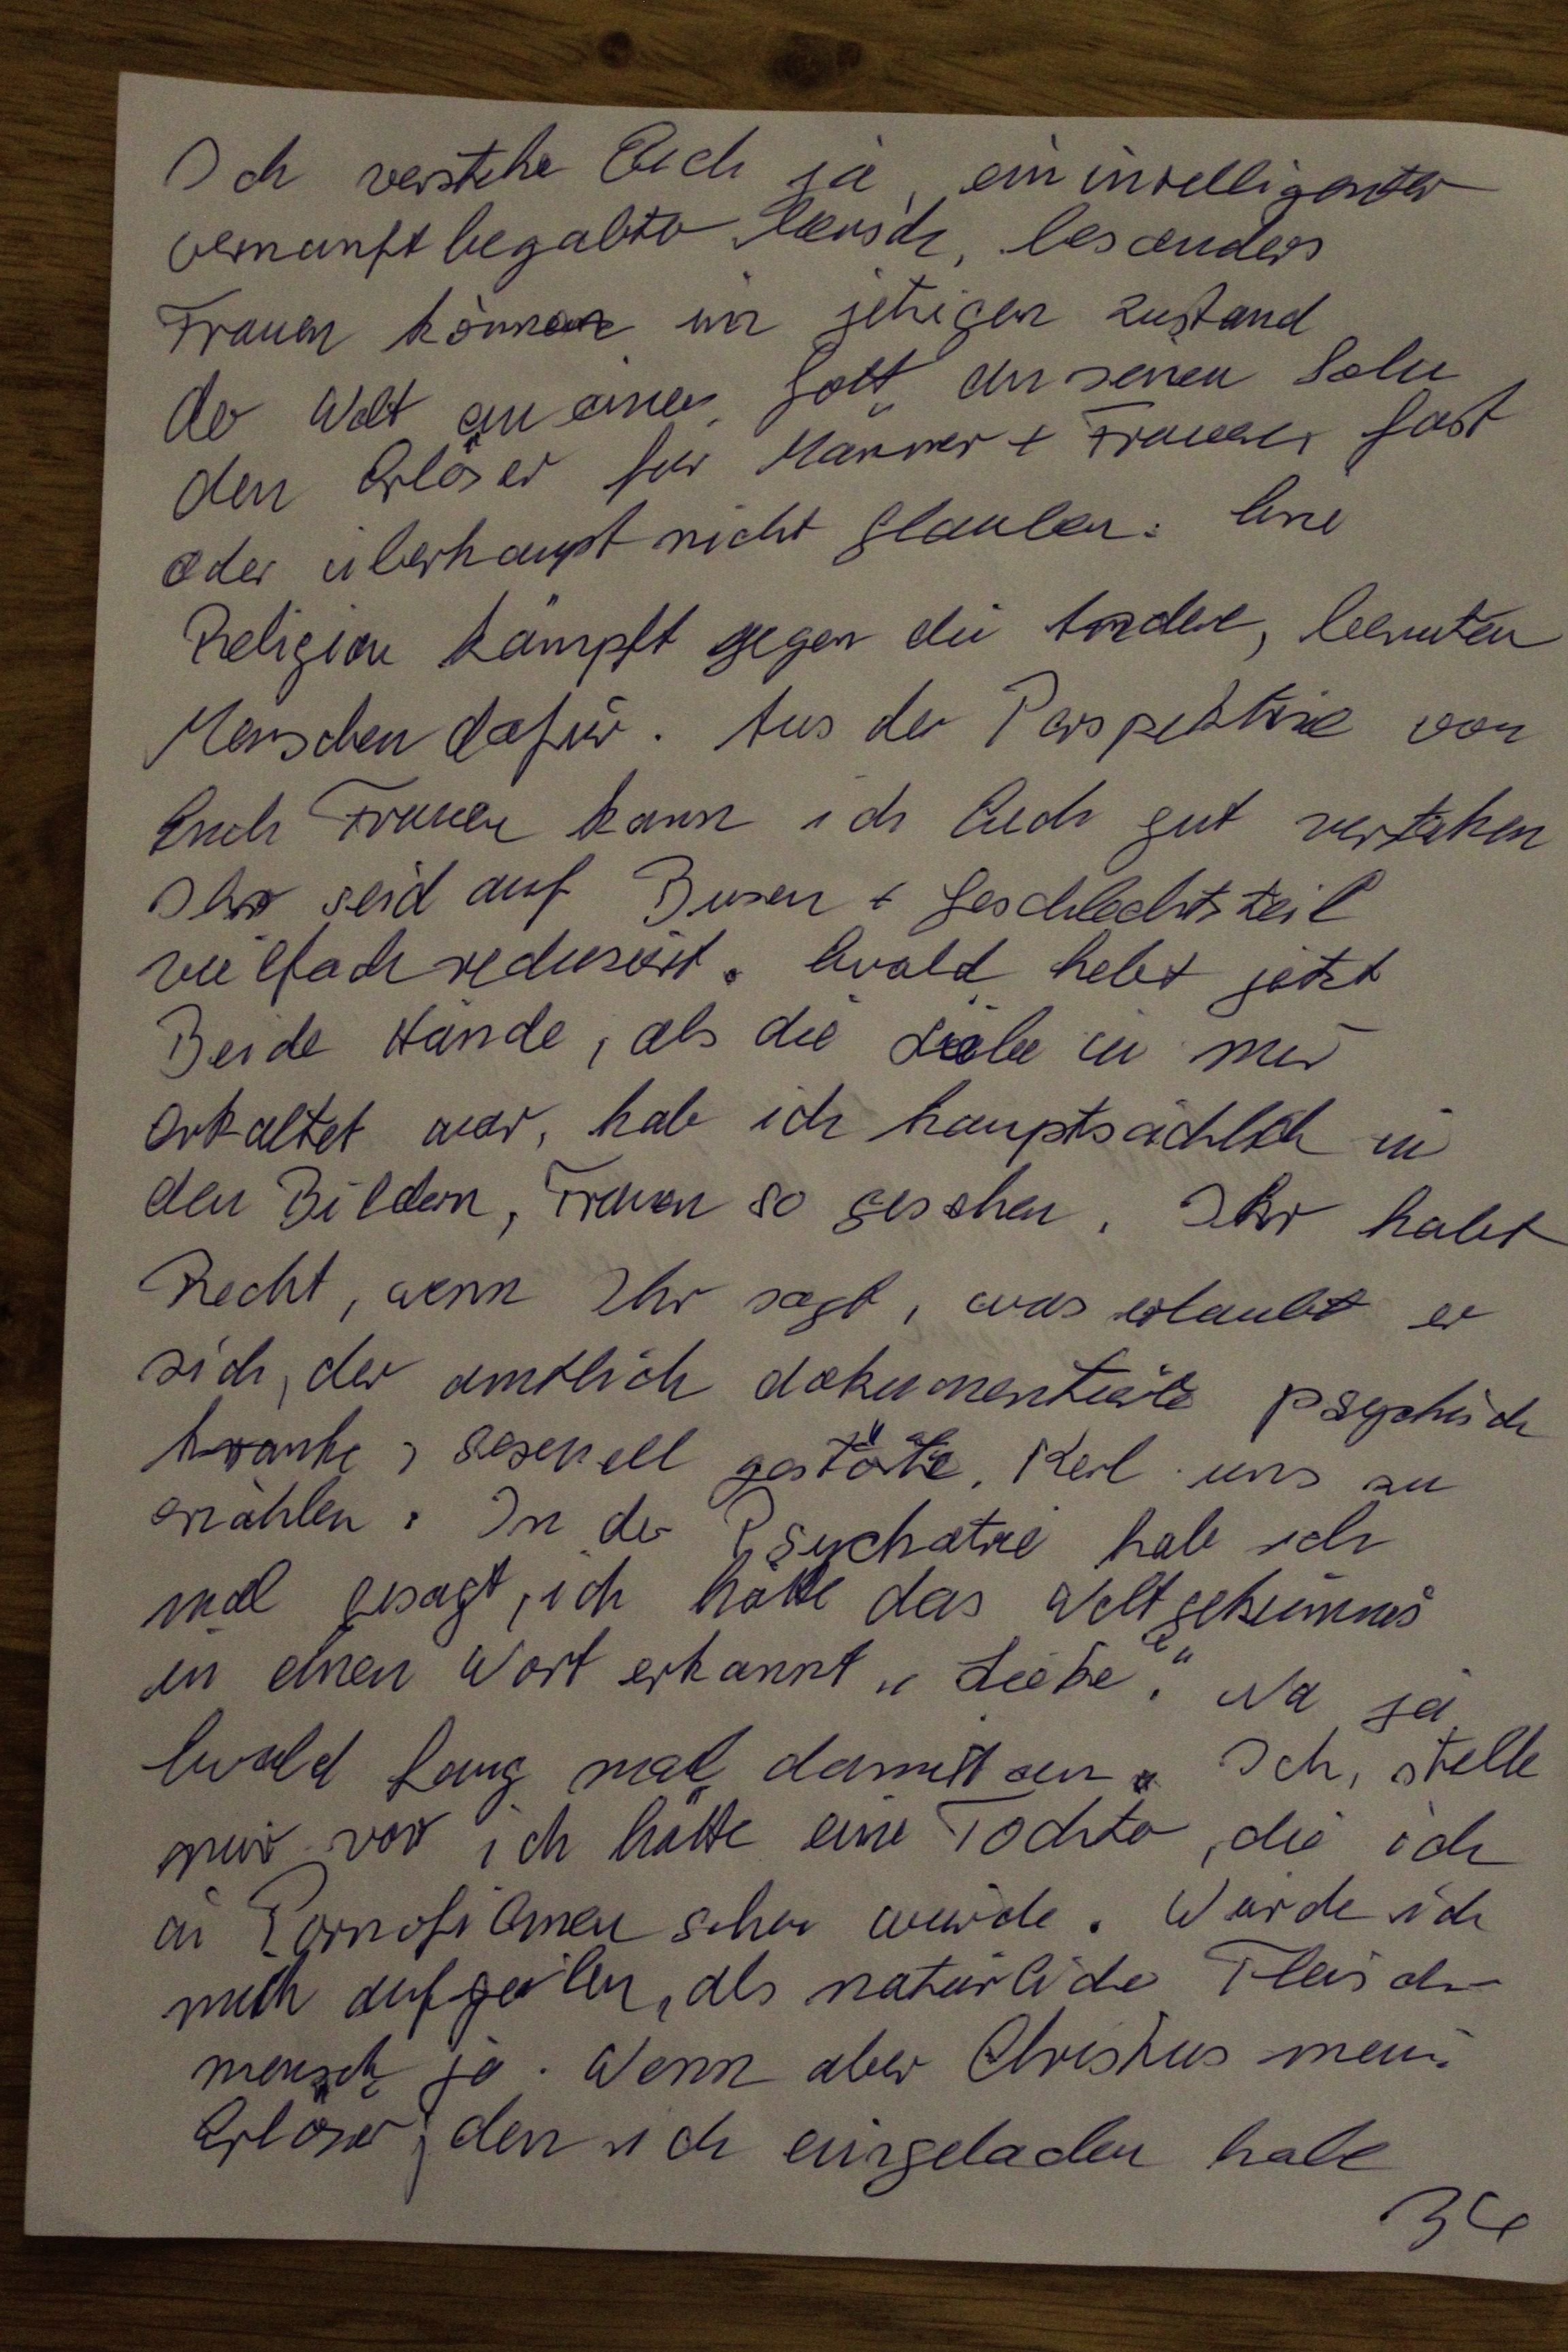 Ich verstehe Euch ja, ein intelligenter
vernunftbegabter Mensch, besonders
Frauen können im jetzigen Zustand
der Welt an einen Gott an seinen Sohn
den Erlöser für Männer + Frauen fast
oder überhaupt nicht glauben. Eine
Religion kämpft gegen die Andere, benutzen
Menschen dafür. Aus der Perspektive von
Euch Frauen kann ich Euch gut verstehen
Ihr seid auf Busen + Geschlechtsteil
vielfach reduziert. Ewald hebt jetzt
Beide Hände, als die Liebe in mir
erkaltet war, hab ich hauptsächlich in
den Bildern, Frauen so gesehen. Ihr habt
Recht, wenn Ihr sagt, was erlaubt er
sich, der amtlich dokumentierte psychisch
kranke, sexuell gestörte, Kerl uns zu
erzählen. In der Psychatrie hab ich
mal gesagt, ich hätte das Weltgeheimnis
in einen Wort erkannt „Liebe". Na ja
Ewald fang mal damit an. Ich, stelle
mir vor ich hätte eine Tochter, die ich
in Pornofilmen sehen würde. Würde ich
mich aufgeilen, als natürliche Fleisch-
mensch ja. Wenn aber Christus mein
Erlöser, den ich eingeladen habe